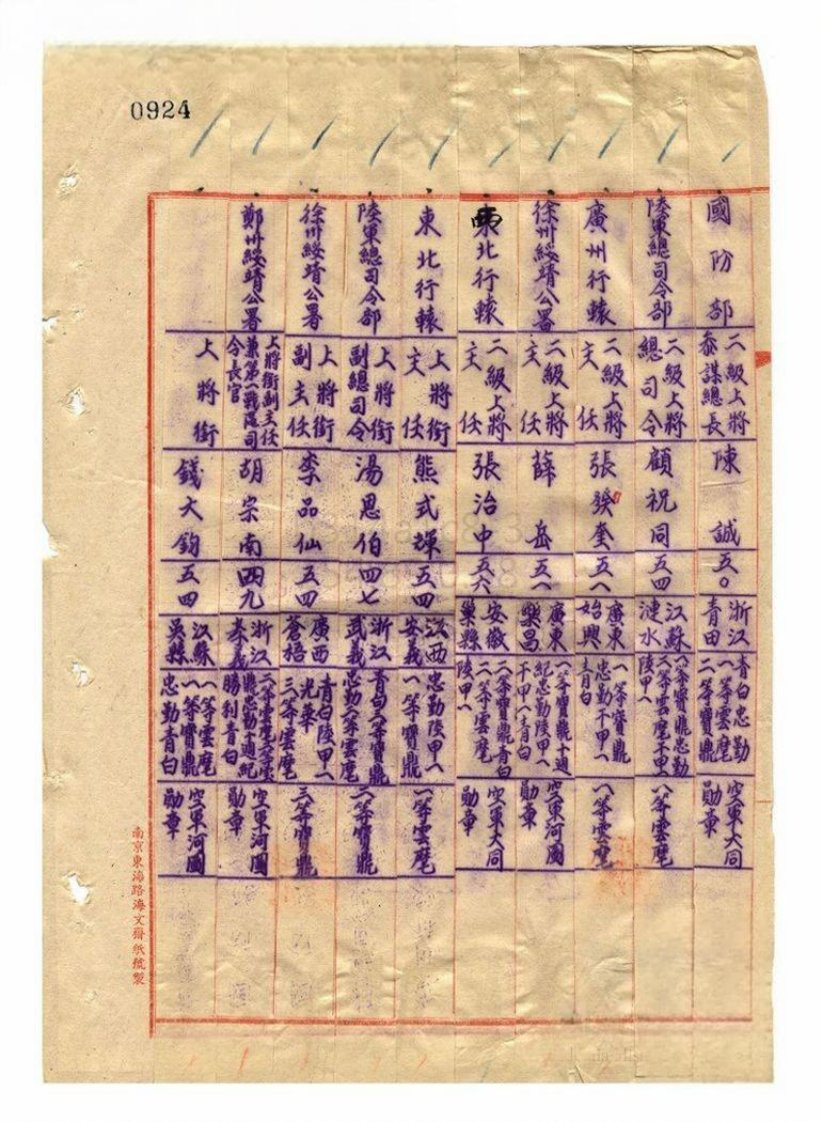 0924
國防部 二級上將參謀總長 陳誠 五〇 浙江青田 青白忠勤一等雲麾二等寶鼎 空軍大同勛章
陸軍總司令部 二級上將總司令 顧祝同 五四 江蘇漣水 一等寶鼎忠勤二等雲麾不甲一陸甲一 一等雲麾
廣州行轅 二級上將主任 張發奎 五八 廣東始興 一等寶鼎忠勤不甲一青白 一等雲麾
徐州綏靖公署 二級上將主任 薛岳 五八 廣東樂昌 一等寶鼎十週紀忠勤陸甲一不甲一青白 空軍河圖勛章
西北行轅 二級上將主任 張治中 五六 安徽巢縣 二等寶鼎青白二等雲麾陸甲一 空軍大同勛章
東北行轅 上將銜主任 熊式輝 五四 江西安義 忠勤陸甲一一等寶鼎 一等雲麾
陸軍總司令部 上將銜副總司令 湯恩伯 四七 浙江武義 青白二等寶鼎忠勤二等雲麾 二等寶鼎
徐州綏靖公署 上將銜副主任 李品仙 五四 廣西蒼梧 青白陸甲一光華三等雲麾 二等寶鼎
鄭州綏靖公署 上將銜副主任兼第一戰區司令長官 胡宗南 四九 浙江孝義 鼎忠勤十週紀勝利青白 空軍河圖勛章
上將銜 錢大鈞 五四 江蘇吳縣 一等雲麾一等寶鼎忠勤青白 空軍河圖勛章
南京東海路海文齋紙號製